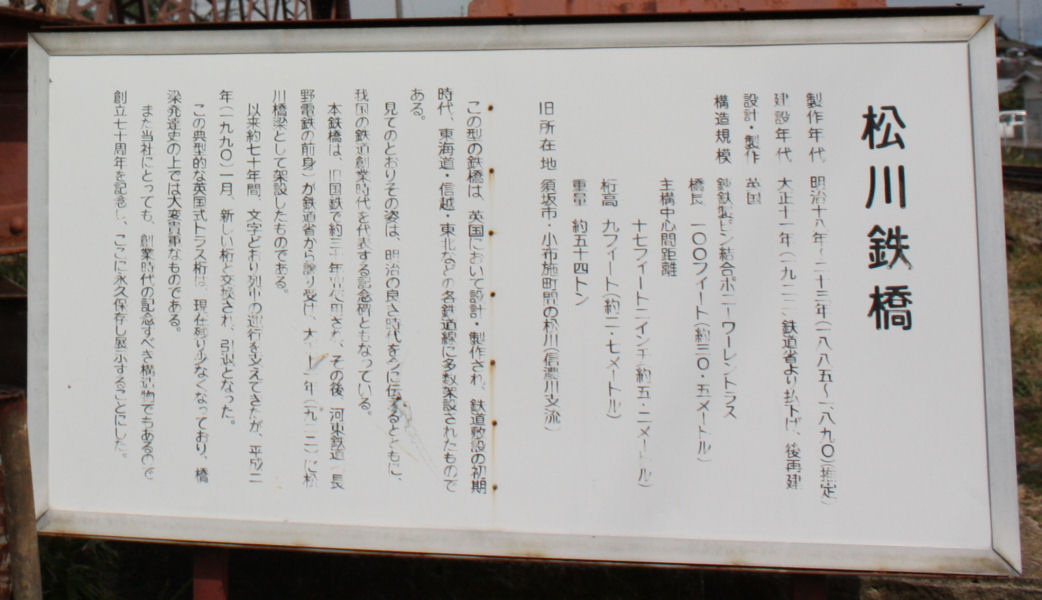 松川鉄橋
製作年代 明治十八年〜二十三年(一八八五〜一八九〇)推定
建設年代 大正十一年(一九二二、鉄道省より払下げ、後再建
設計・製作 英国
構造規模 錬鉄製ピン結合ポニーワーレントラス
橋長 一〇〇フィート(約三〇・五メートル)
主構中心間距離
十七フィート二インチ(約五・二メートル)
桁高 九フィート(約二・七メートル)
重量 約五十四トン
旧所在地 須坂市・小布施町間の松川(信濃川支流)
この型の鉄橋は、英国において設計・製作され、鉄道敷設の初期
時代、東海道・信越・東北などの各鉄道線に多数架設されたもので
ある。
見てのとおりその姿は、明治の良き時代を今に伝えるとともに、
我国の鉄道創業時代を代表する記念碑ともなっている。
本鉄橋は、旧国鉄で約三十年出使用され、その後、河東鉄道(長
野電鉄の前身)が鉄道省から譲り受け、大正十一年(一九二二)に松
川橋梁として架設したものである。
以来約七十年間、文字どおり列車の運行を支えてきたが、平成二
年(一九九〇)一月、新しい桁と交換され、引退となった。
この典型的な英国式トラス桁は、現在残り少なくなっており、橋
梁発達史の上では大変貴重なものである。
また当社にとっても、創業時代の記念すべき構造物でもあるので
創立七十周年を記念し、ここに永久保存し展示することにした。